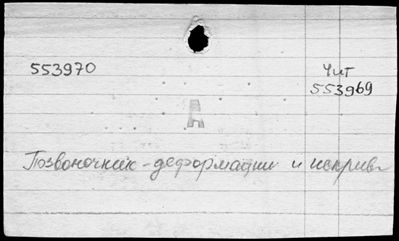 553970
Чит
553969
А
Позвоночник - деформации и искрив-